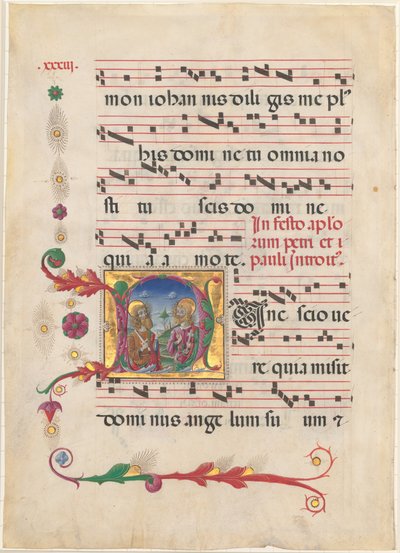 xxxiij
mon iohan nis dili gis me pl'
his domi ne tu omnia no
sti tu scis do mi ne
qui a a mo te.
In festo aplo
rum petri et
pauli Introit'.
Nunc scio ue
re quia misit
domi nus ange lum su um